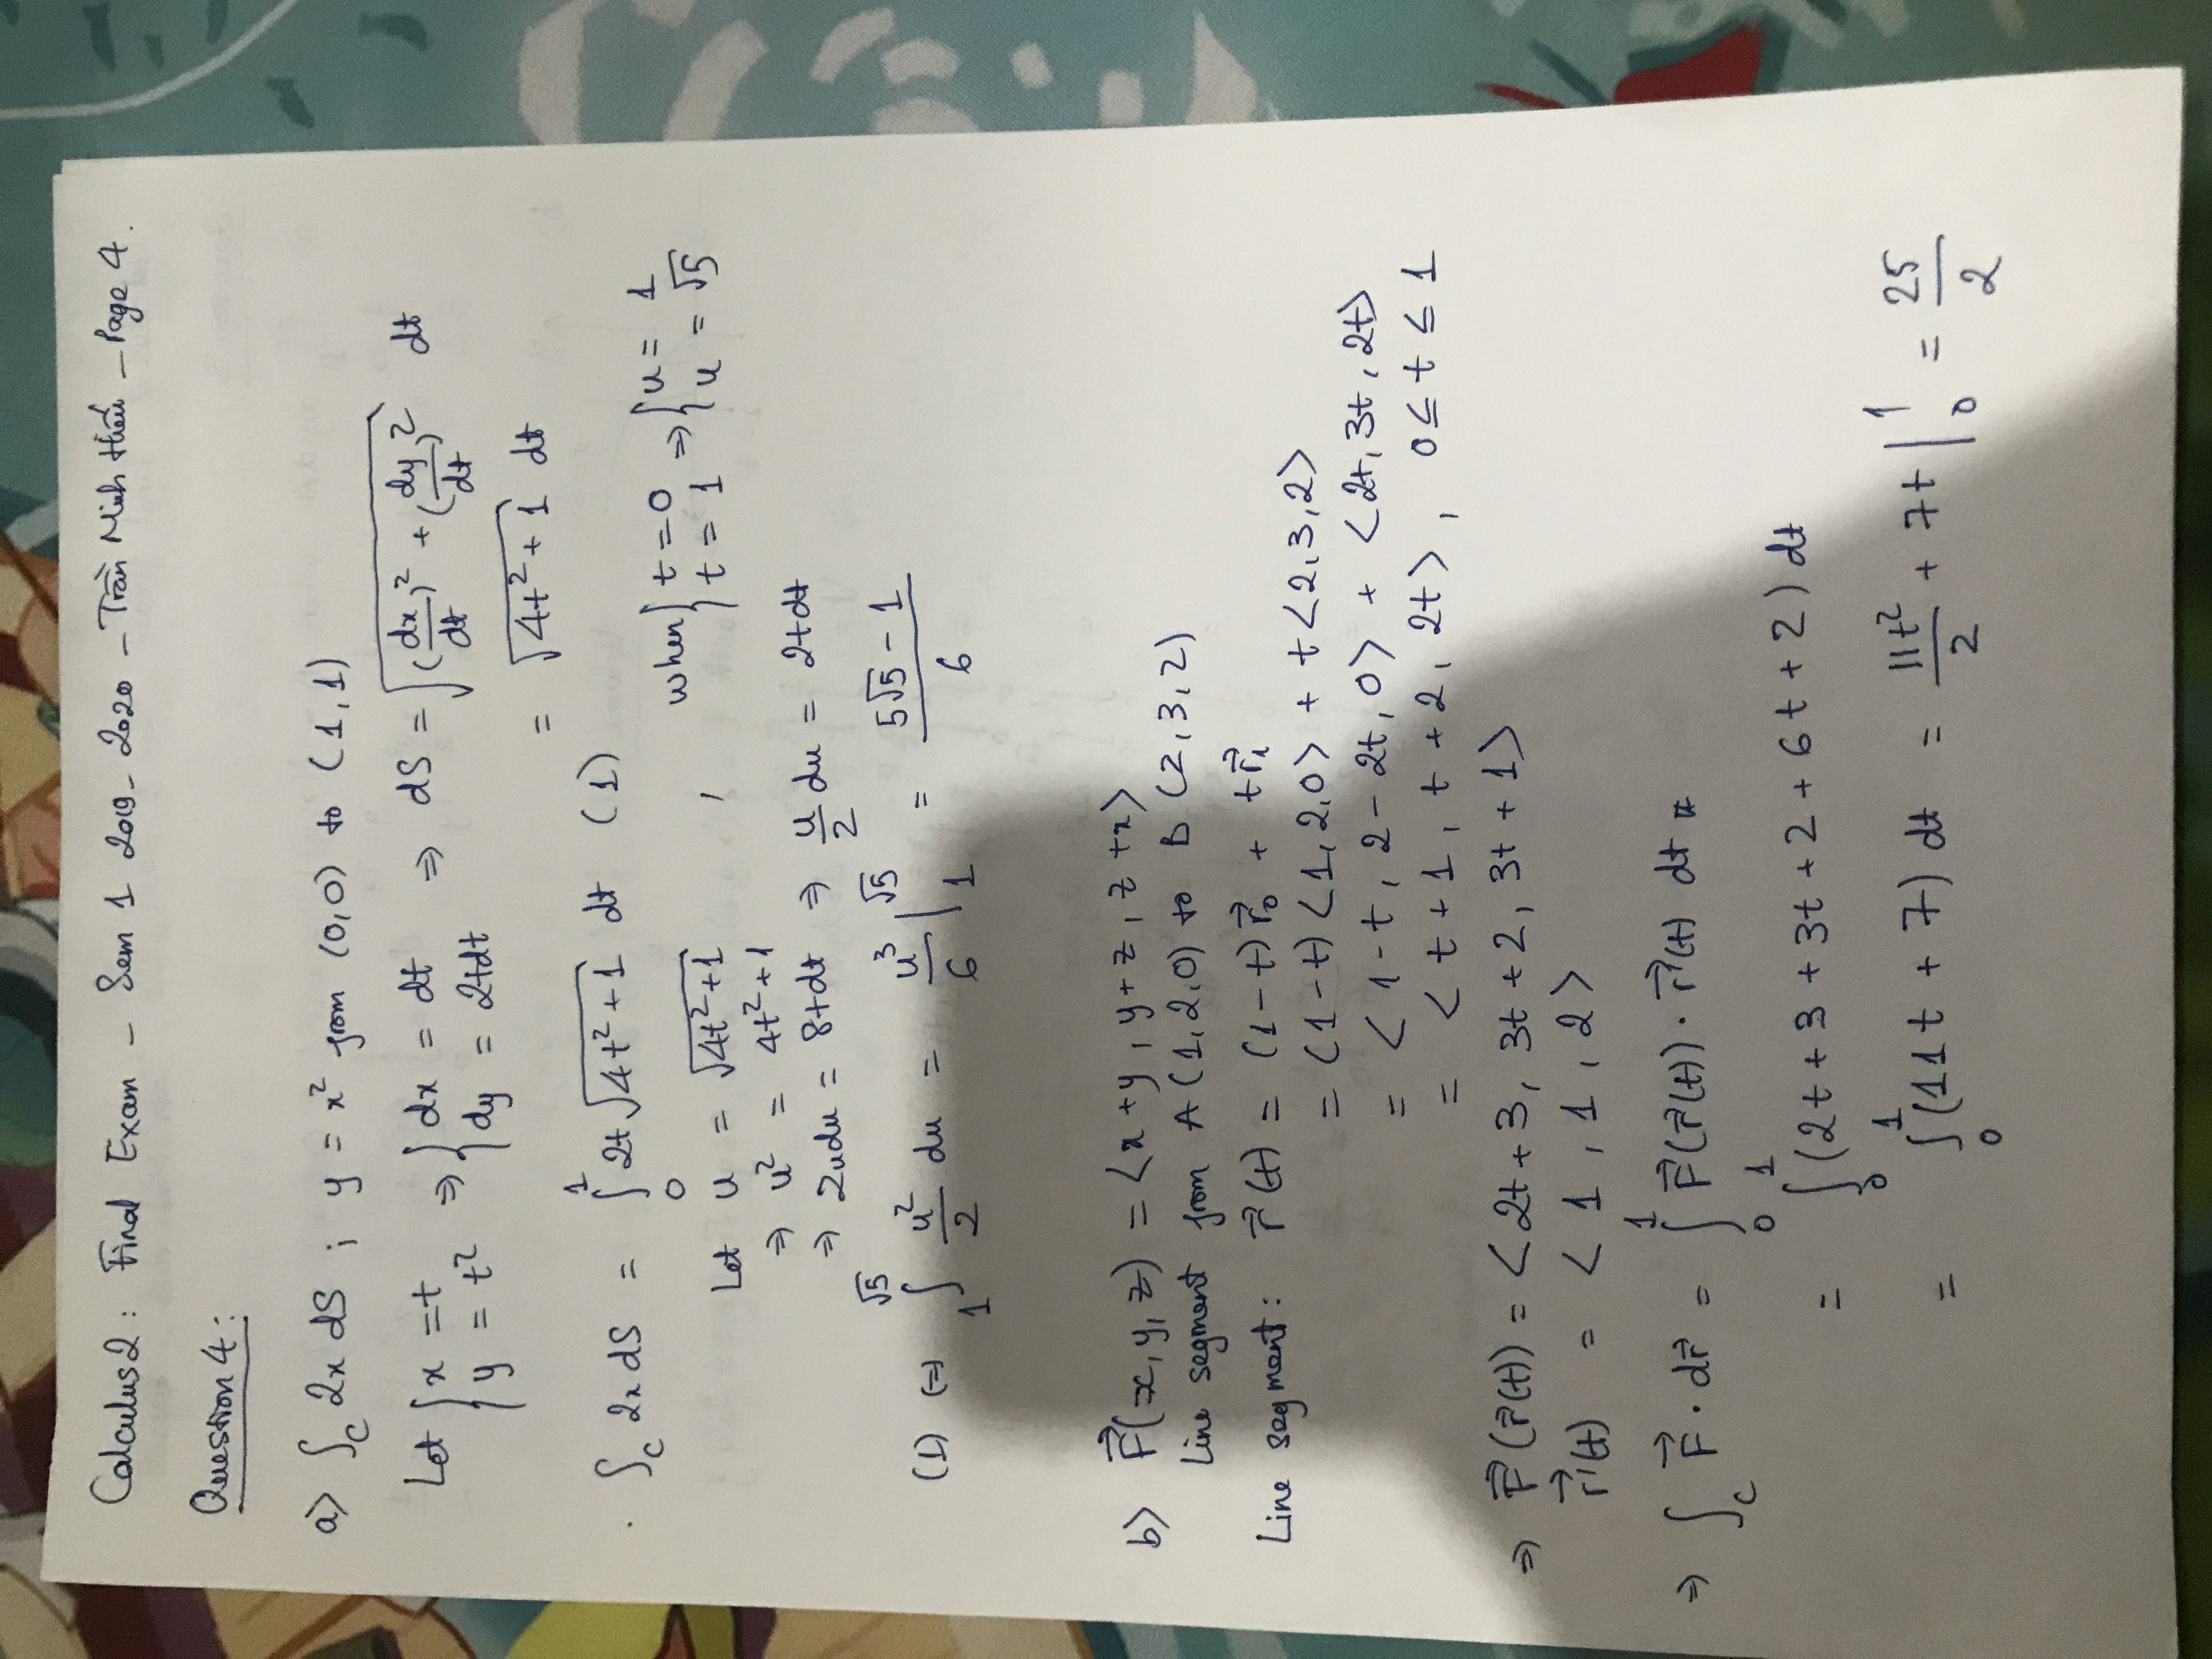 Calculus 2 : Final Exam – Sem 1 2019-2020 – Trần Minh Hiếu – Page 4.
Question 4 :
a) ∫_C 2x dS ; y = x² from (0,0) to (1,1)
Let { x = t ; y = t² ⇒ { dx = dt ; dy = 2tdt ⇒ dS = √((dx/dt)² + (dy/dt)²) dt
= √(4t² + 1) dt
∫_C 2x dS = ∫_0^1 2t √(4t² + 1) dt (1)
Let u = √(4t² + 1) , when { t = 0 ; t = 1 ⇒ { u = 1 ; u = √5
⇒ u² = 4t² + 1
⇒ 2udu = 8tdt ⇒ u/2 du = 2tdt
(1) ⇔ ∫_1^√5 u²/2 du = u³/6 |_1^√5 = (5√5 - 1)/6
b) F⃗(x, y, z) = <x + y, y + z, z + x>
Line segment from A (1, 2, 0) to B (2, 3, 2)
Line segment : r⃗(t) = (1 - t) r⃗₀ + t r⃗₁
= (1 - t) <1, 2, 0> + t <2, 3, 2>
= <1 - t, 2 - 2t, 0> + <2t, 3t, 2t>
= <t + 1, t + 2, 2t> , 0 ≤ t ≤ 1
⇒ F⃗(r⃗(t)) = <2t + 3, 3t + 2, 3t + 1>
r⃗'(t) = <1, 1, 2>
⇒ ∫_C F⃗ · dr⃗ = ∫_0^1 F⃗(r⃗(t)) · r⃗'(t) dt
= ∫_0^1 (2t + 3 + 3t + 2 + 6t + 2) dt
= ∫_0^1 (11t + 7) dt = 11t²/2 + 7t |_0^1 = 25/2